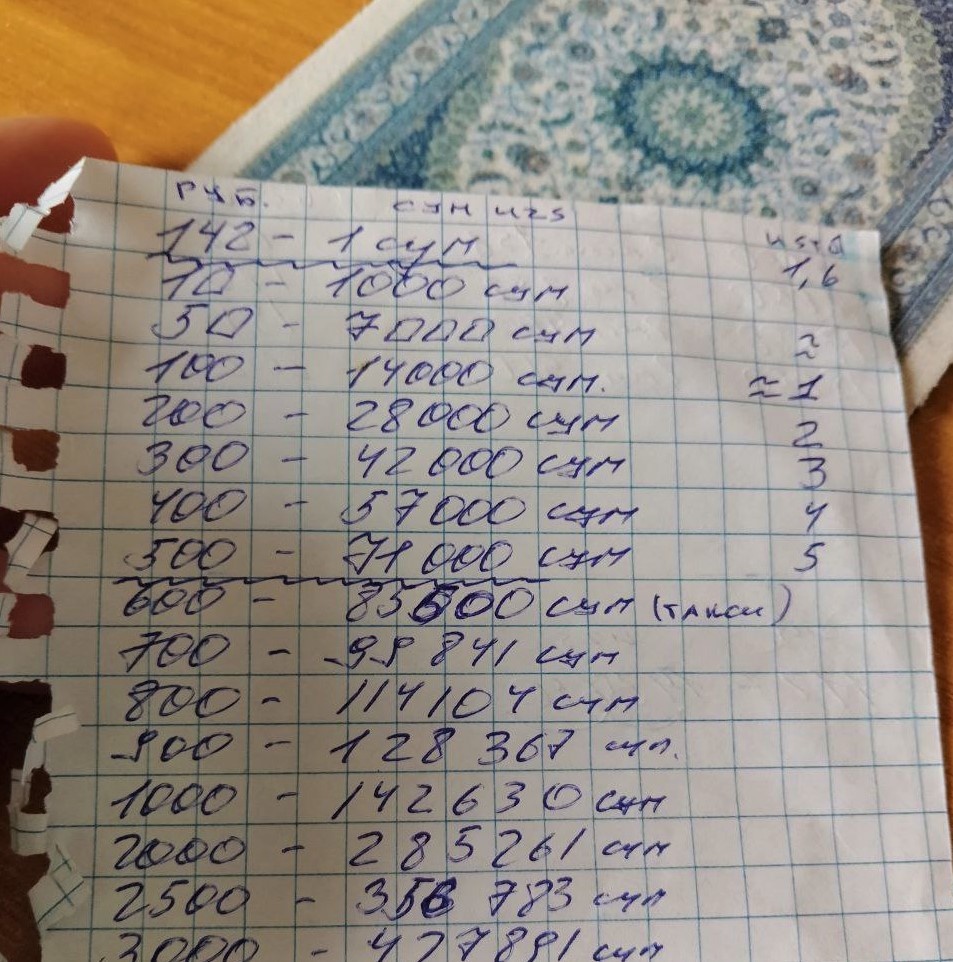 РУБ. СУМ UZS usd
142 - 1 сум 1,6
10 - 1000 сум
50 - 7000 сум ≈
100 - 14000 сум. ≈ 1
200 - 28000 сум 2
300 - 42000 сум 3
400 - 57000 сум 4
500 - 71000 сум 5
600 - 85500 сум (такси)
700 - 99841 сум
800 - 114104 сум
900 - 128 367 сум.
1000 - 142630 сум
2000 - 285261 сум
2500 - 356 783 сум
3000 - 427891 сум